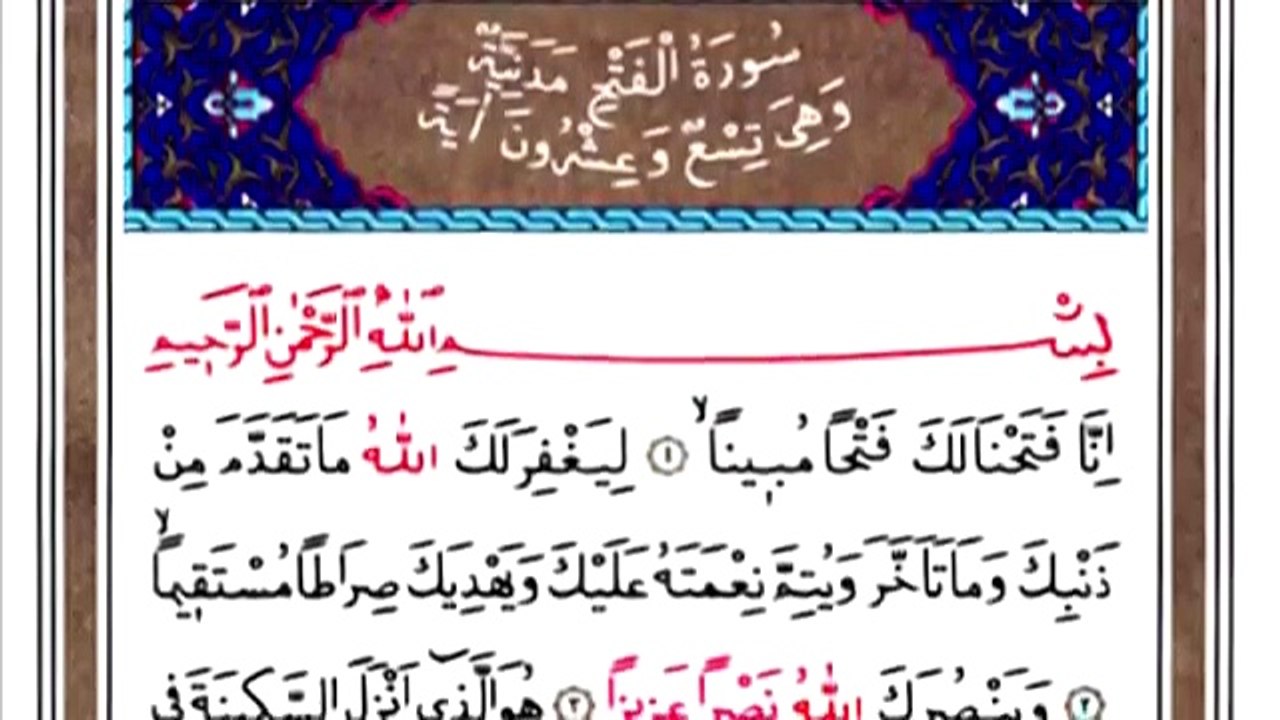 سُورَةُ الْفَتْحِ مَدَنِيَّةٌ
وَهِيَ تِسْعٌ وَعِشْرُونَ اٰيَةً
بِسْمِ اللّٰهِ الرَّحْمٰنِ الرَّحِيمِ
اِنَّا فَتَحْنَا لَكَ فَتْحًا مُبِينًاۙ ﴿١﴾ لِيَغْفِرَ لَكَ اللّٰهُ مَا تَقَدَّمَ مِنْ
ذَنْبِكَ وَمَا تَاَخَّرَ وَيُتِمَّ نِعْمَتَهُ عَلَيْكَ وَيَهْدِيَكَ صِرَاطًا مُسْتَقِيمًاۙ
﴿٢﴾ وَيَنْصُرَكَ اللّٰهُ نَصْرًا عَزِيزًا ﴿٣﴾ هُوَ الَّذِٓي اَنْزَلَ السَّكِينَةَ فِي